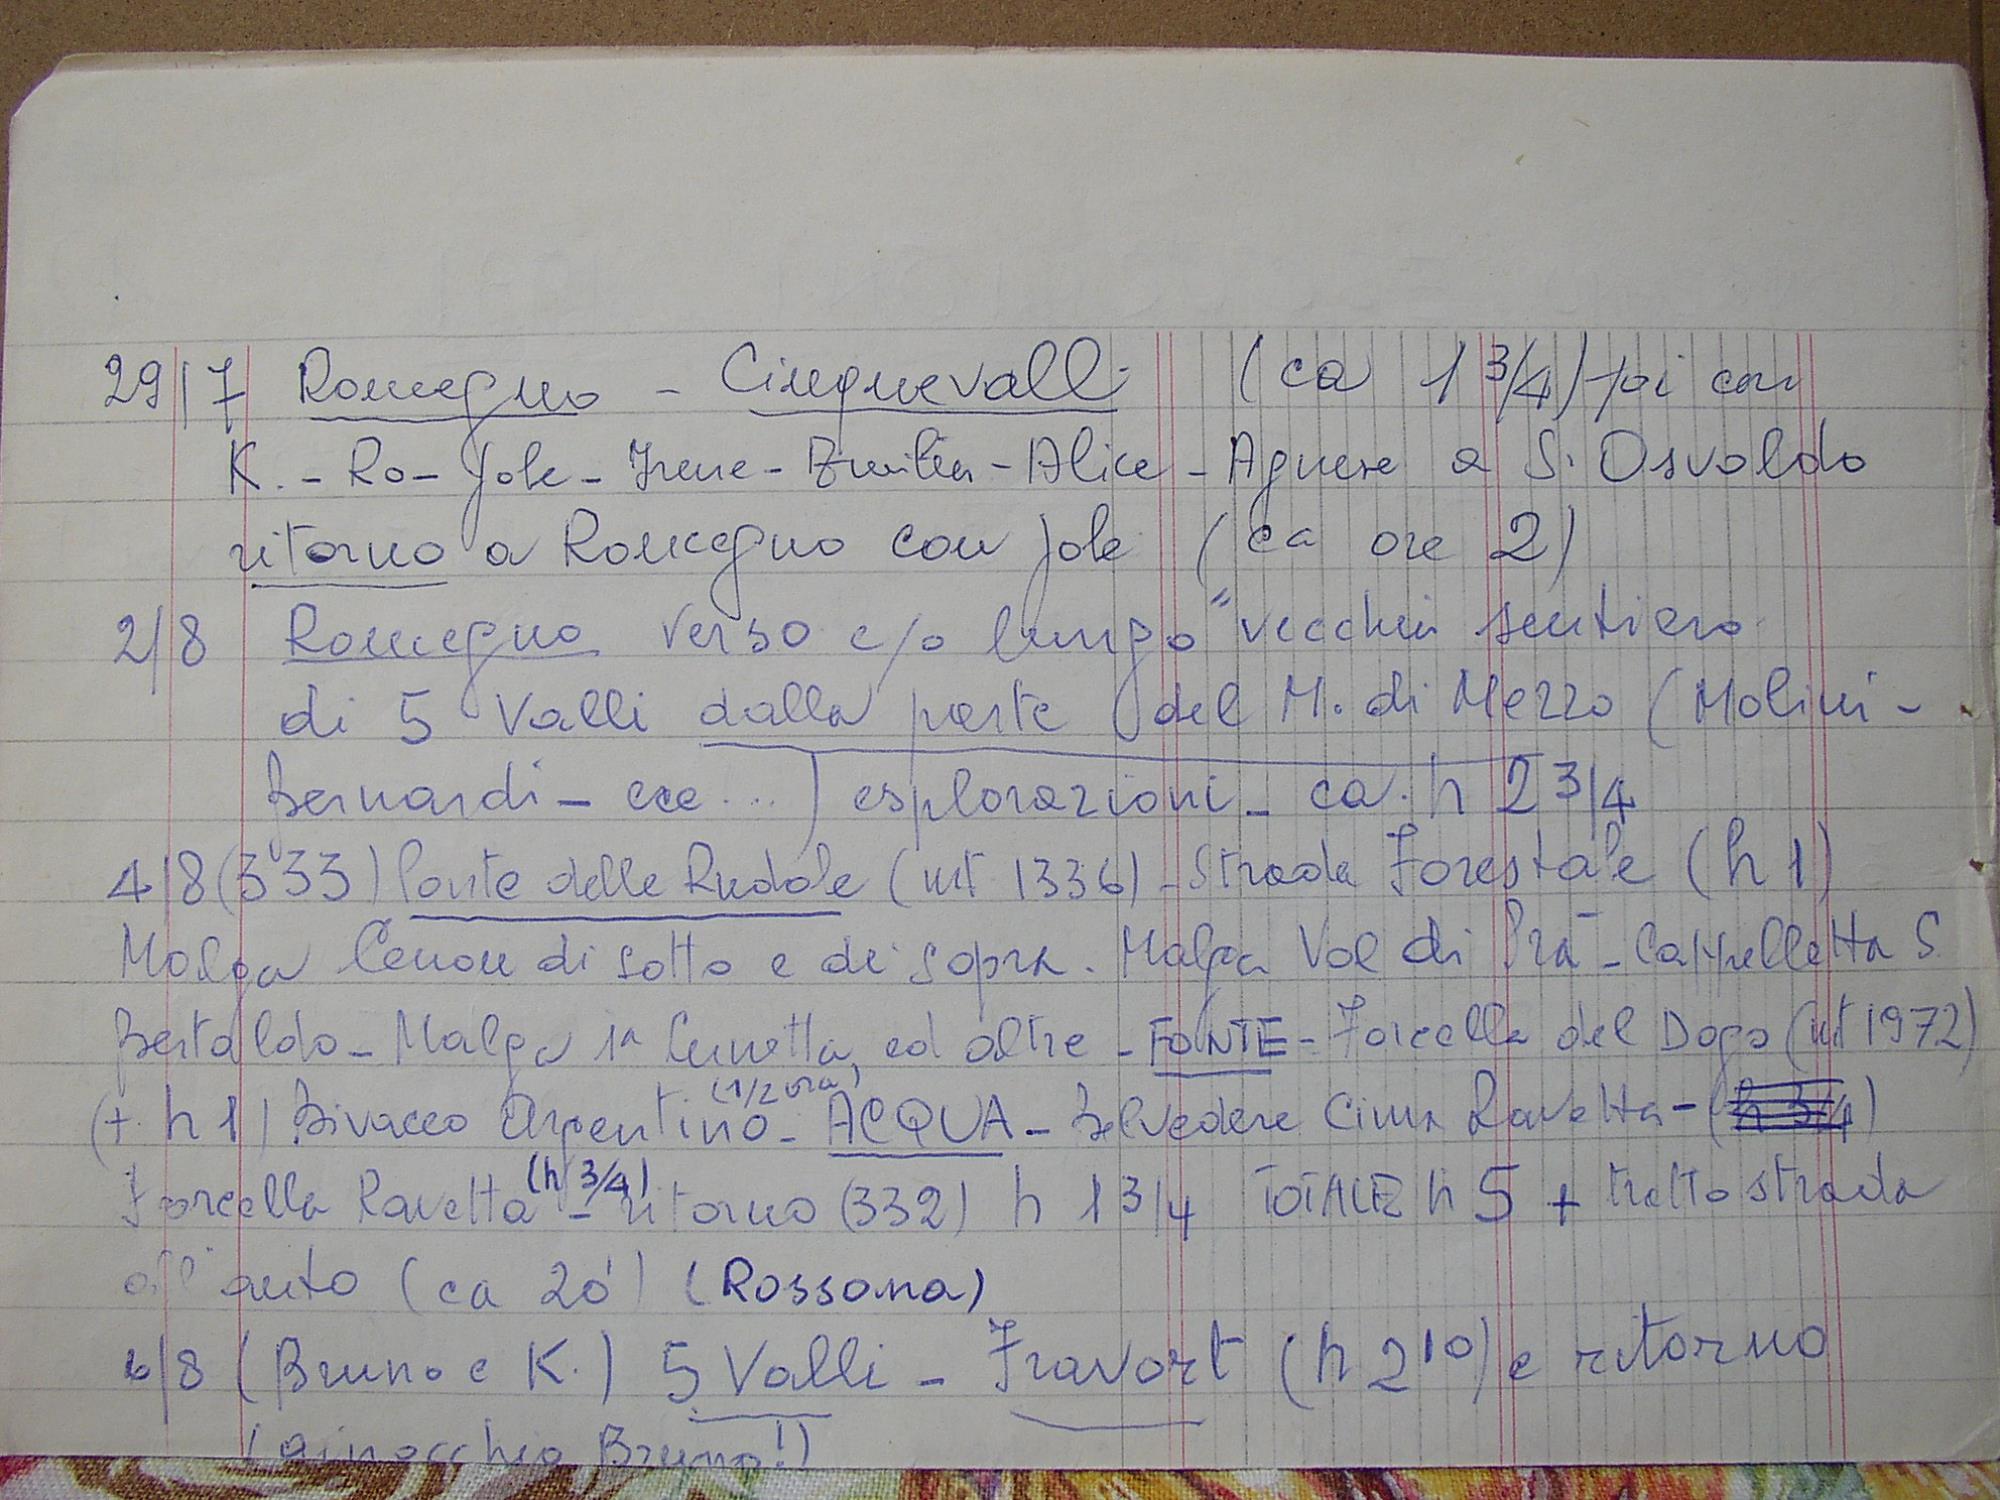 29/7 Roncegno - Cinquevalli (ca 1 3/4) poi con
K. - Ro - Jole - Irene - Emilia - Alice - Agnese a S. Osvaldo
ritorno a Roncegno con Jole (ca ore 2)
2/8 Roncegno verso c/o lungo "vecchio sentiero
di 5 Valli dalla parte del M. di Mezzo (Molini -
Bernardi - ecc ...) esplorazioni - ca. h 2 3/4
4/8 (333) Ponte delle Rudole (mt 1336) - Strada Forestale (h 1)
Malga Cenon di sotto e di sopra. Malga Val di Prà - Cappelletta S.
Bertaldo - Malga 1a ed altre - FONTE - Forcella del Dogo (mt 1972)
(+ h 1) Bivacco Argentino (1/2 ora) - ACQUA - Belvedere Cima Ravetta - (h 3/4)
Forcella Ravetta (h 3/4) - ritorno (332) h 1 3/4 TOTALE h 5 + tratto strada
all'auto (ca 20') (Rossana)
6/8 (Bruno e K.) 5 Valli - Fravort (h 2 10) e ritorno
(ginocchio Bruno!)